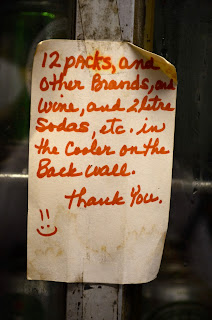 12 packs, and
other Brands, and
wine, and 2 litre
Sodas, etc. in
the Cooler on the
Back wall.
Thank You.